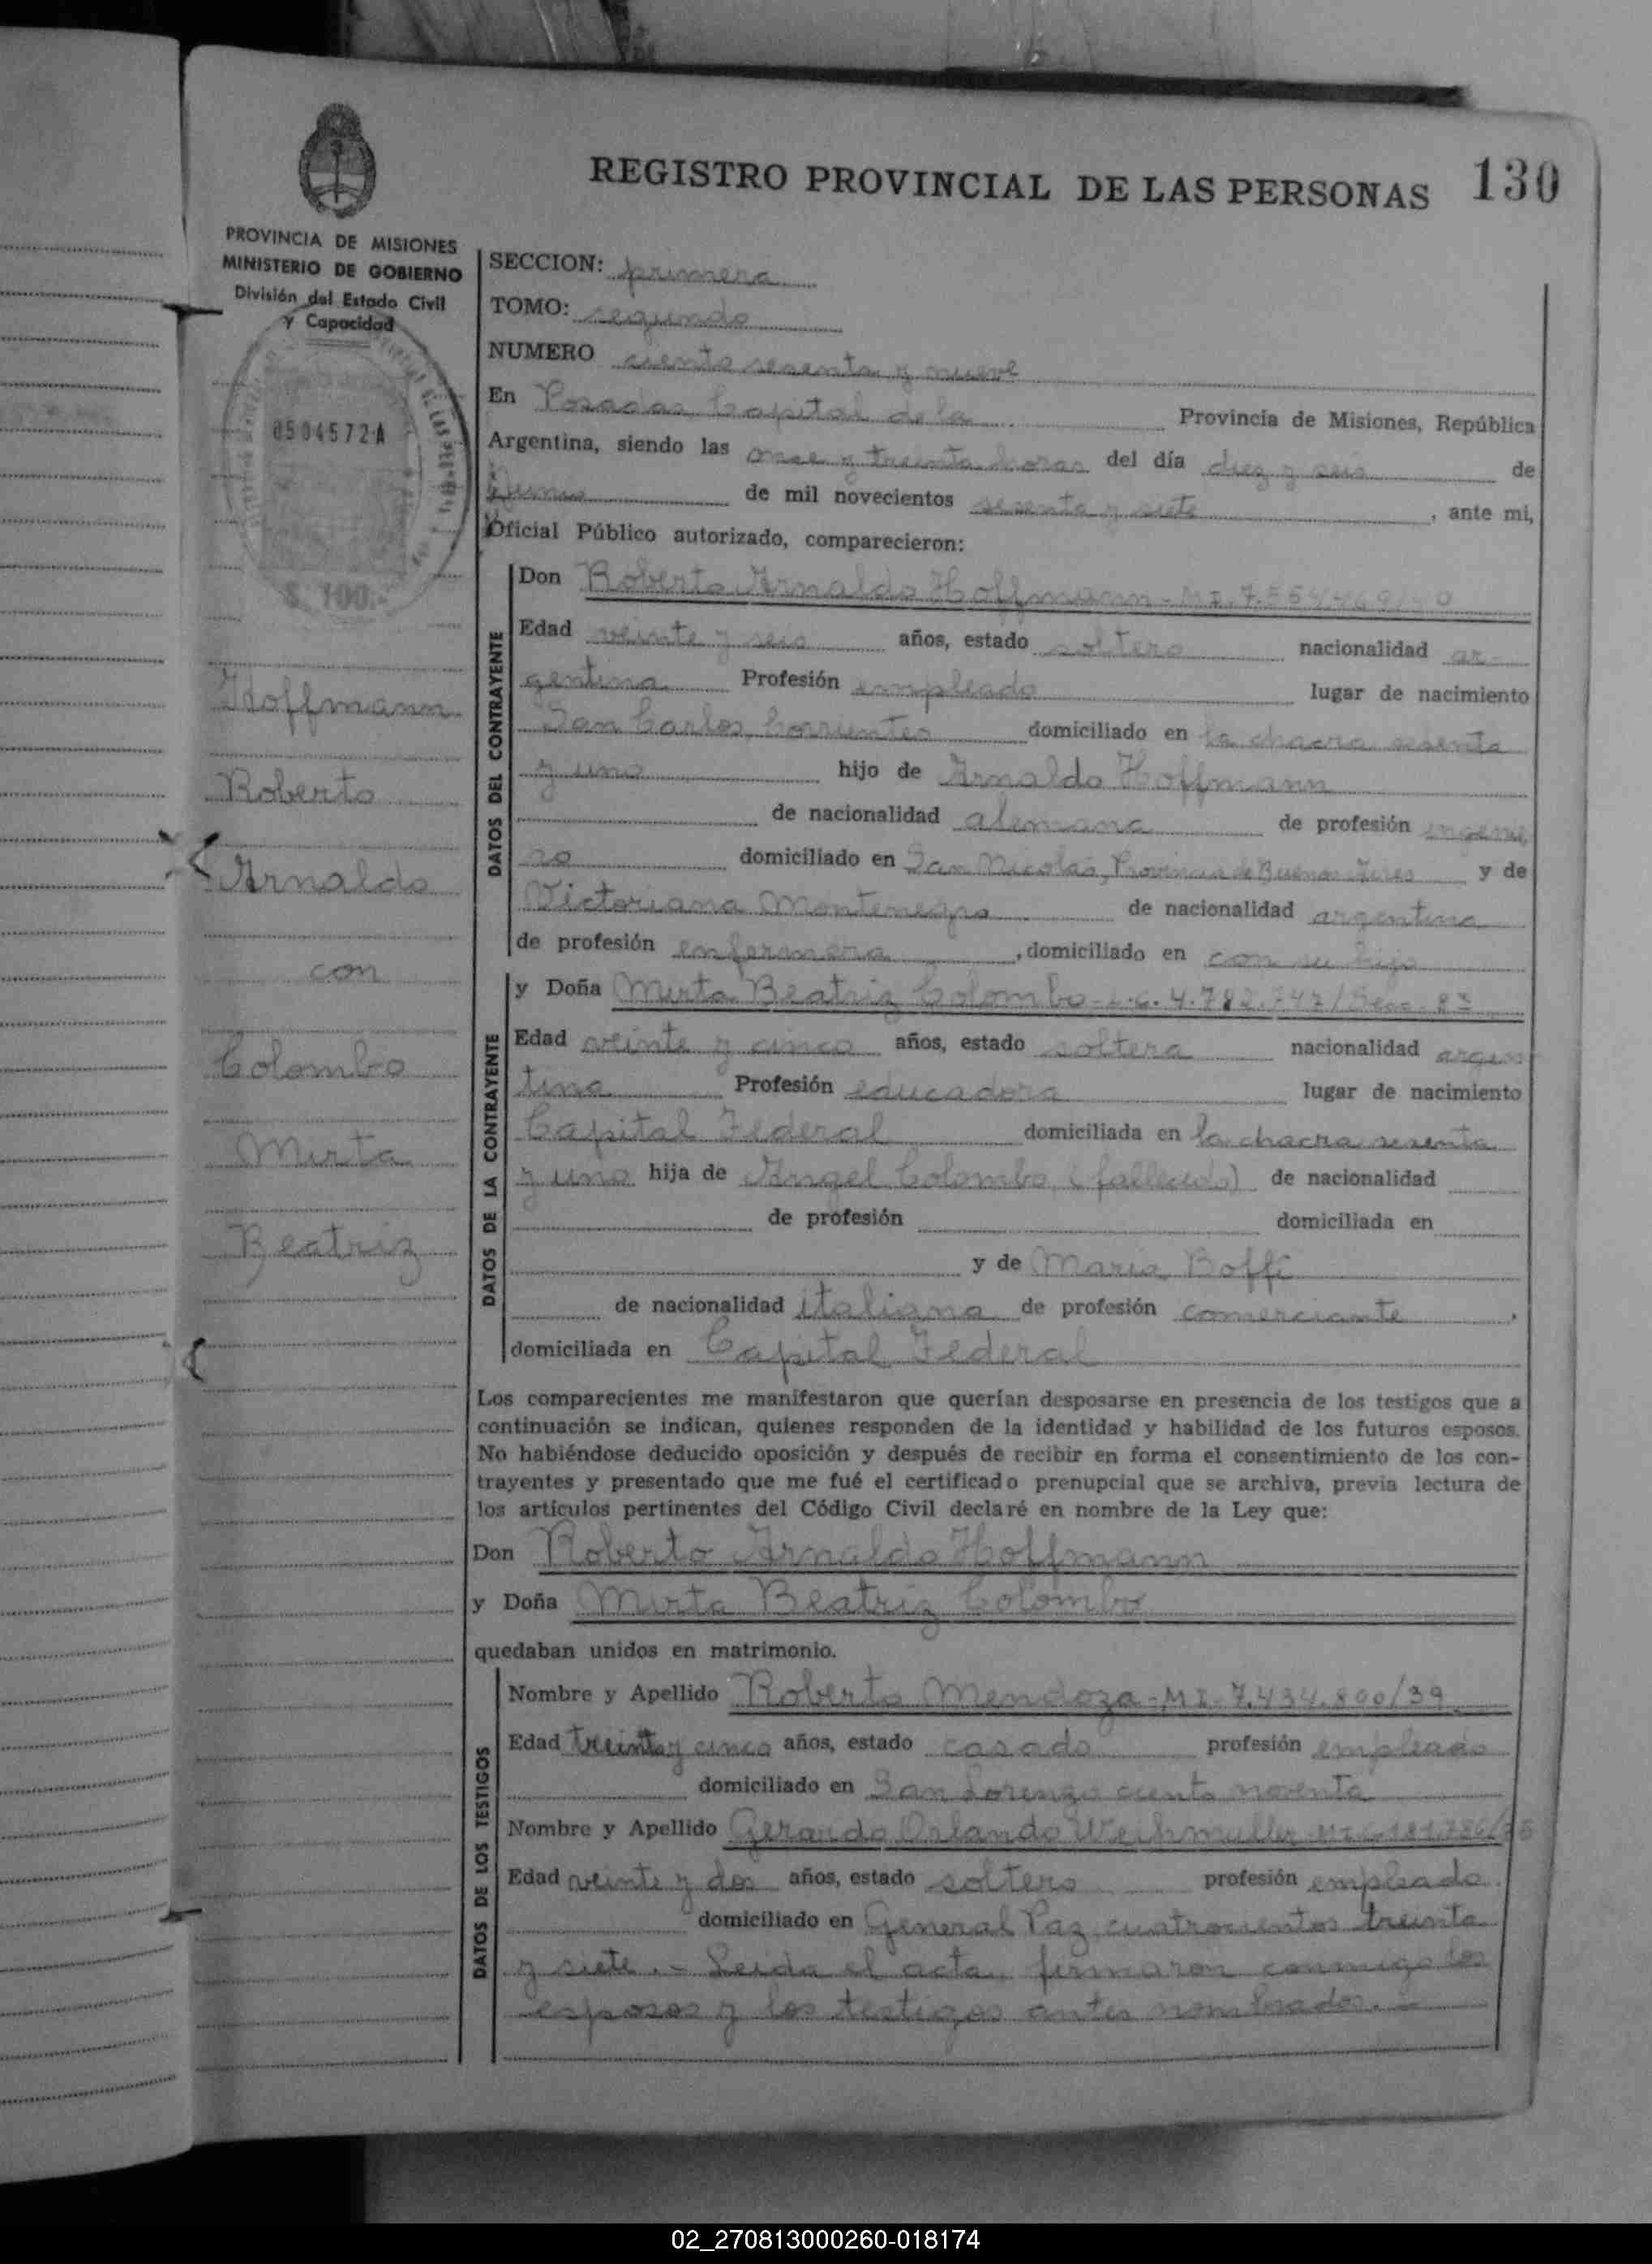 REGISTRO PROVINCIAL DE LAS PERSONAS 130
PROVINCIA DE MISIONES
MINISTERIO DE GOBIERNO
División del Estado Civil
y Capacidad
0504572A
$ 100.-
Hoffmann
Roberto
Arnaldo
con
Colombo
Mirta
Beatriz
SECCION: primera
TOMO: segundo
NUMERO ciento sesenta y nueve
En Posadas Capital de la Provincia de Misiones, República
Argentina, siendo las once y treinta horas del día diez y seis de
junio de mil novecientos sesenta y siete, ante mi,
Oficial Público autorizado, comparecieron:
DATOS DEL CONTRAYENTE
Don Roberto Arnaldo Hoffmann - M I. 7.
Edad veinte y seis años, estado soltero nacionalidad ar-
gentina Profesión empleado lugar de nacimiento
San Carlos, Corrientes domiciliado en la chacra sesenta
y uno hijo de Arnaldo Hoffmann
de nacionalidad alemana de profesión ingenie
ro domiciliado en San Nicolás, Provincia de Buenos Aires y de
Victoriana Montenegro de nacionalidad argentina
de profesión enfermera, domiciliado en con su hijo
DATOS DE LA CONTRAYENTE
y Doña Mirta Beatriz Colombo - L.C. 4.782.747/
Edad veinte y cinco años, estado soltera nacionalidad argen
tina Profesión educadora lugar de nacimiento
Capital Federal domiciliada en la chacra sesenta
y uno hija de Angel Colombo, (fallecido) de nacionalidad
de profesión domiciliada en
y de Maria Boffi
de nacionalidad italiana de profesión comerciante,
domiciliada en Capital Federal
Los comparecientes me manifestaron que querían desposarse en presencia de los testigos que a
continuación se indican, quienes responden de la identidad y habilidad de los futuros esposos.
No habiéndose deducido oposición y después de recibir en forma el consentimiento de los con-
trayentes y presentado que me fué el certificado prenupcial que se archiva, previa lectura de
los artículos pertinentes del Código Civil declaré en nombre de la Ley que:
Don Roberto Arnaldo Hoffmann
y Doña Mirta Beatriz Colombo
quedaban unidos en matrimonio.
DATOS DE LOS TESTIGOS
Nombre y Apellido Roberto Mendoza - M I - 7.434.800/39
Edad treinta y cinco años, estado casado profesión empleado
domiciliado en San Lorenzo ciento noventa
Nombre y Apellido Gerardo Orlando Weihmuller
Edad veinte y dos años, estado soltero profesión empleado.
domiciliado en General Paz cuatrocientos treinta
y siete. - Leida el acta, firmaron conmigo los
esposos y los testigos antes nombrados. -
02_270813000260-018174